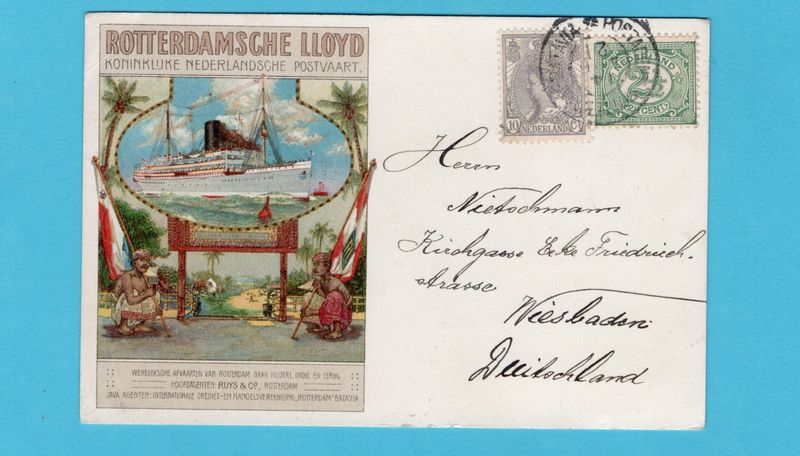 ROTTERDAMSCHE LLOYD
KONINKLIJKE NEDERLANDSCHE POSTVAART.
WEKELIJKSCHE AFVAARTEN VAN ROTTERDAM NAAR NEDERL. INDIE EN TERUG
HOOFDAGENTEN: RUYS & Co., ROTTERDAM
JAVA AGENTEN: INTERNATIONALE CREDIET- EN HANDELSVEREENIGING „ROTTERDAM" BATAVIA
10 NEDERLAND Ct
NEDERLAND
2½
CENTS
Herrn
Nietschmann
Kirchgasse Ecke Friedrich-
strasse
Wiesbaden
Deutschland